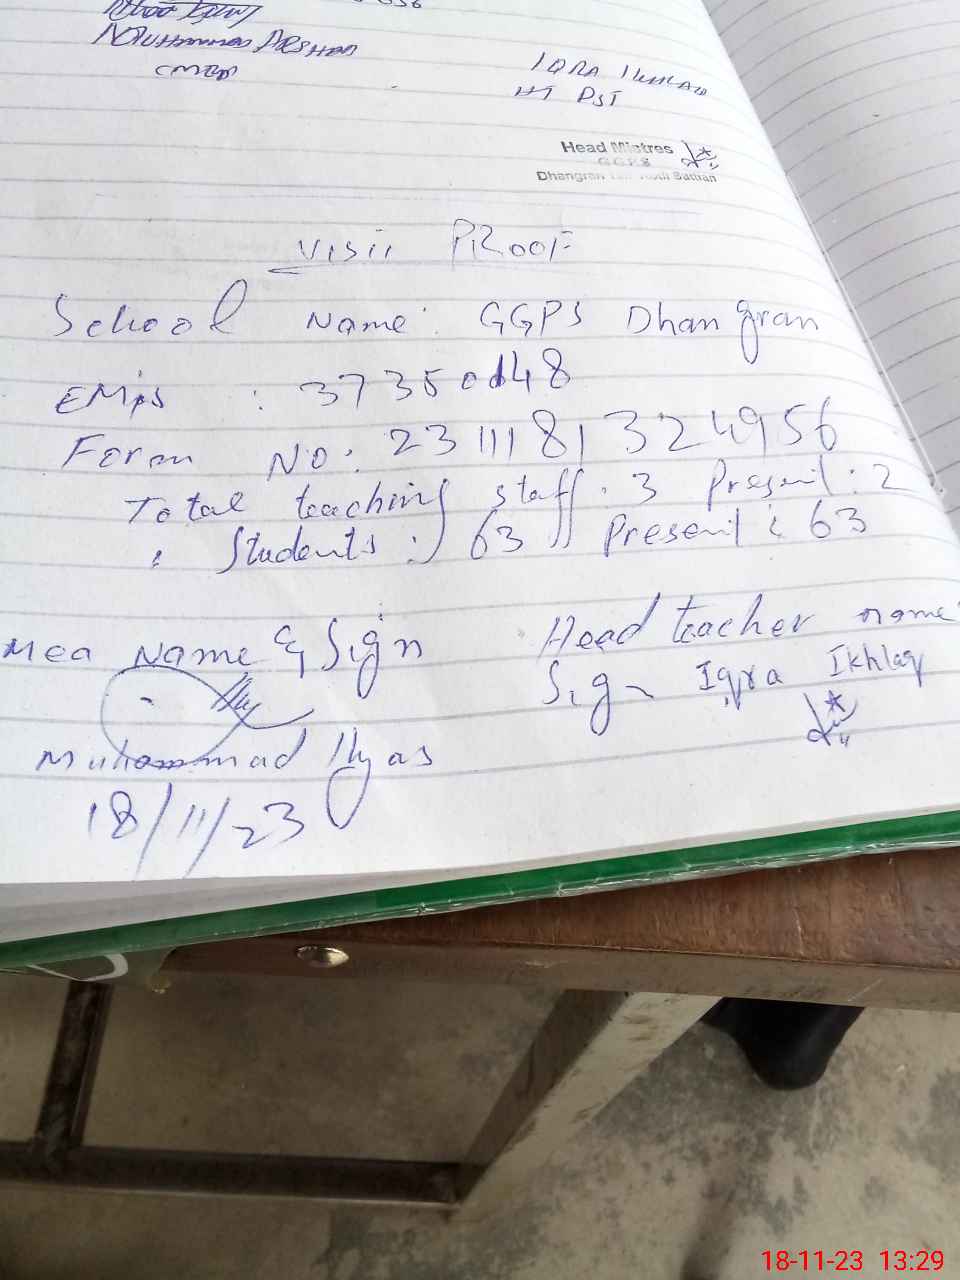 Muhammad Arshad
IQRA IKHLAQ
HT PST
Head Mistres
GGPS
Dhangran
Visit PROOF
School Name: GGPS Dhangran
EMIS :
Form No: 23111181324956
Total teaching staff: 3 Present: 2
" Students: 63 Present: 63
Mea Name & Sign
Head teacher name
Sign Iqra Ikhlaq
Muhammad Ilyas
18/11/23
18-11-23 13:29